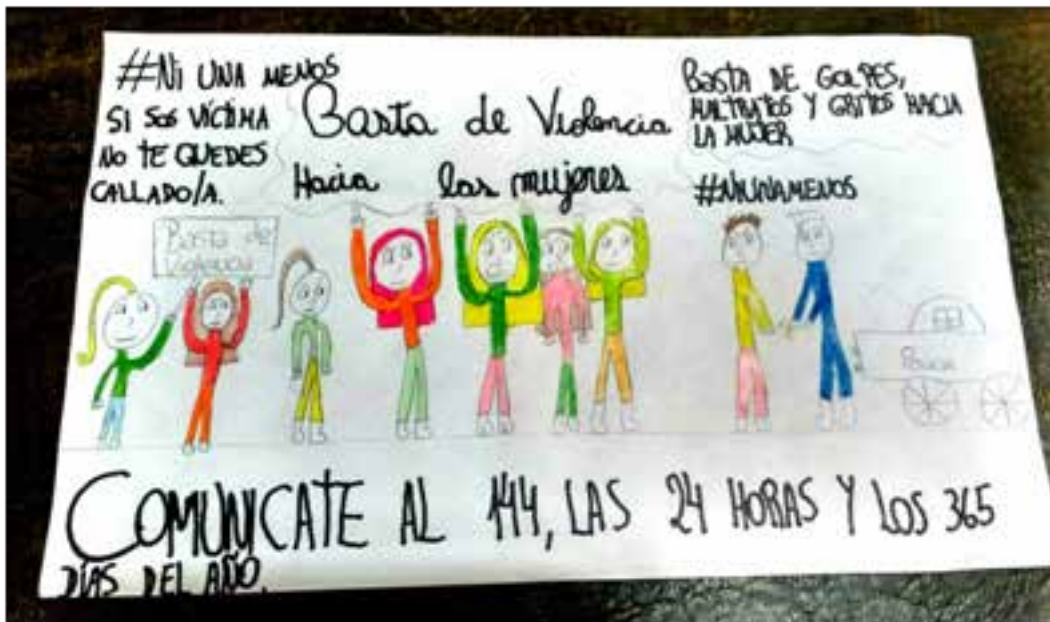 #Ni UNA MENOS
SI SOS VÍCTIMA
NO TE QUEDES
CALLADO/A.
Basta de Violencia
Hacia las mujeres
BASTA DE GOLPES,
MALTRATOS Y GRITOS HACIA
LA MUJER
#NIUNAMENOS
Basta de
Violencia
Policia
COMUNICATE AL 144, LAS 24 HORAS Y LOS 365
DÍAS DEL AÑO.